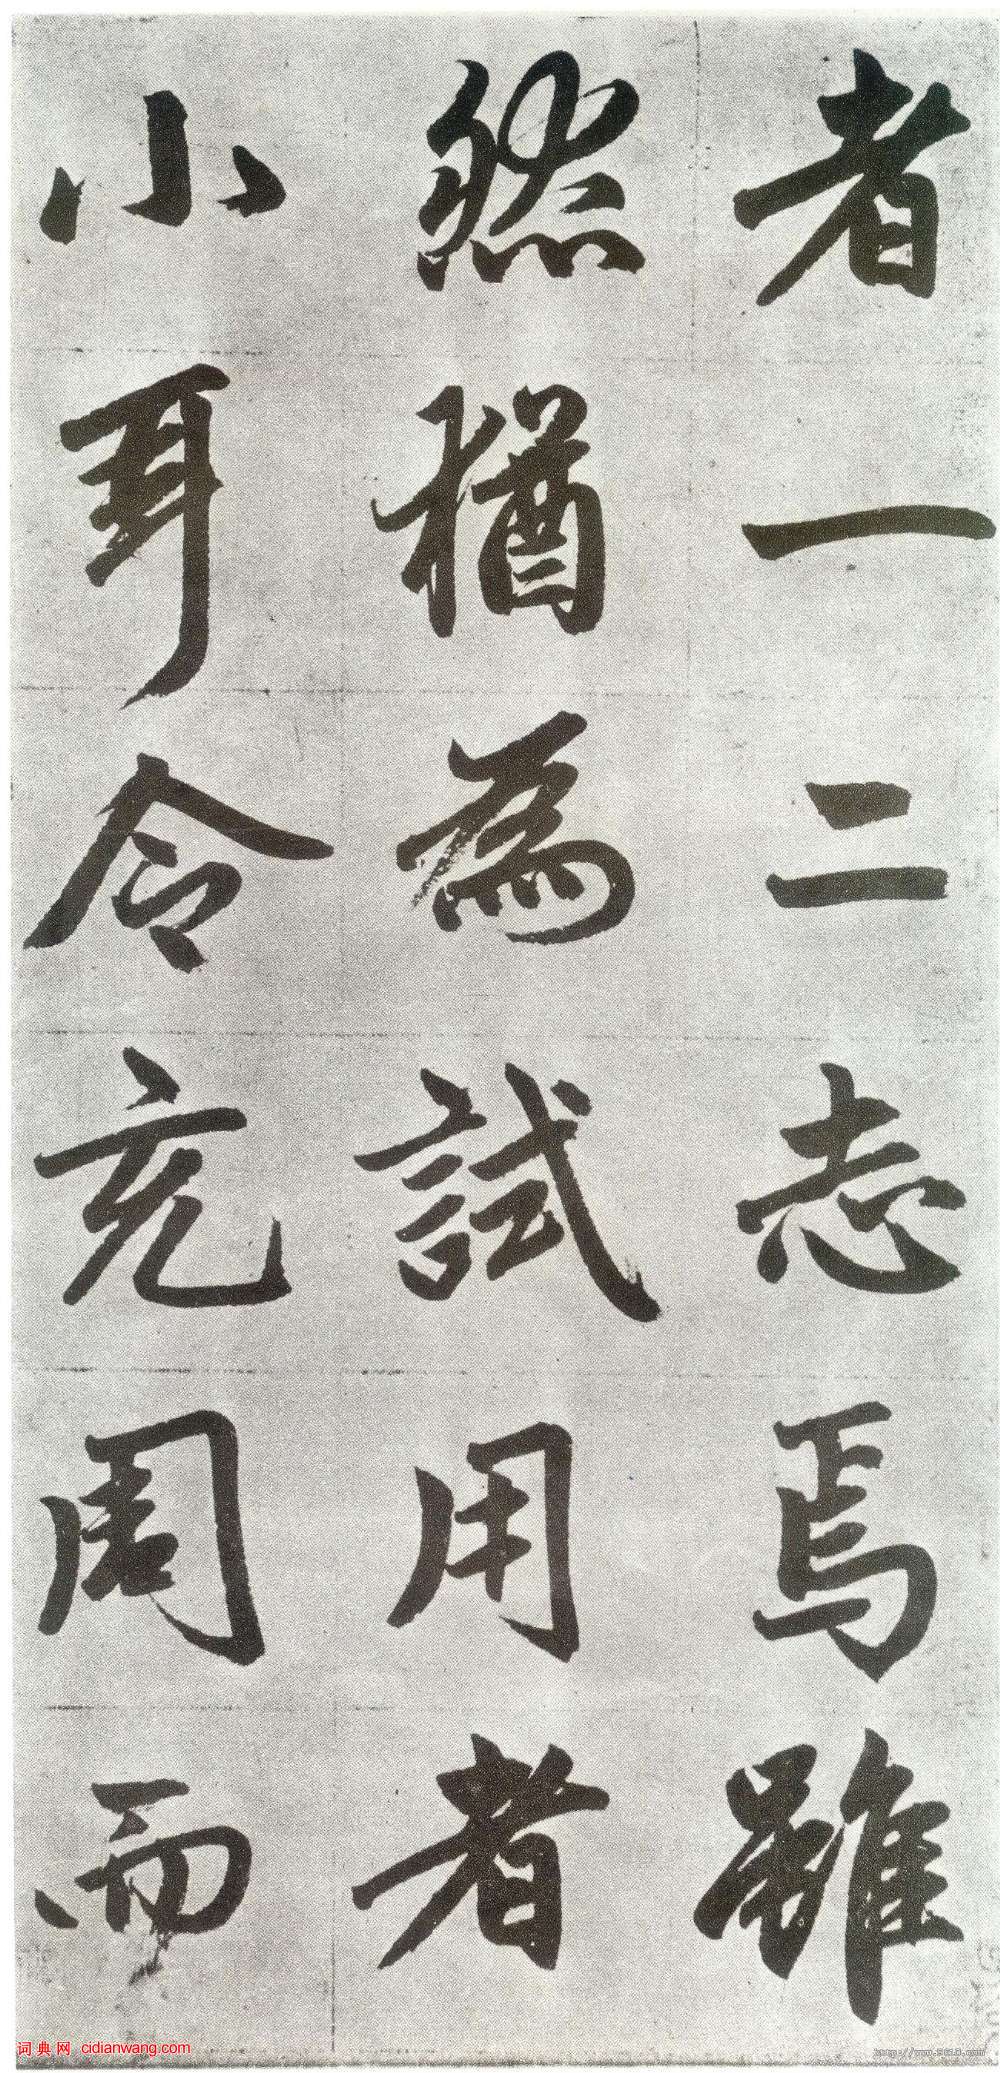 者一二志焉雖
然猶為試用者
小耳令充周而
词典网 cidianwang.com